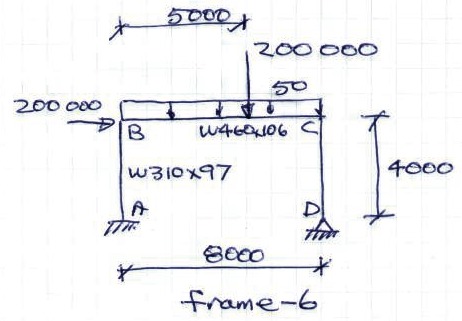 5000
200 000
50
200 000
B
W460x106
C
W310x97
4000
A
D
8000
frame-6